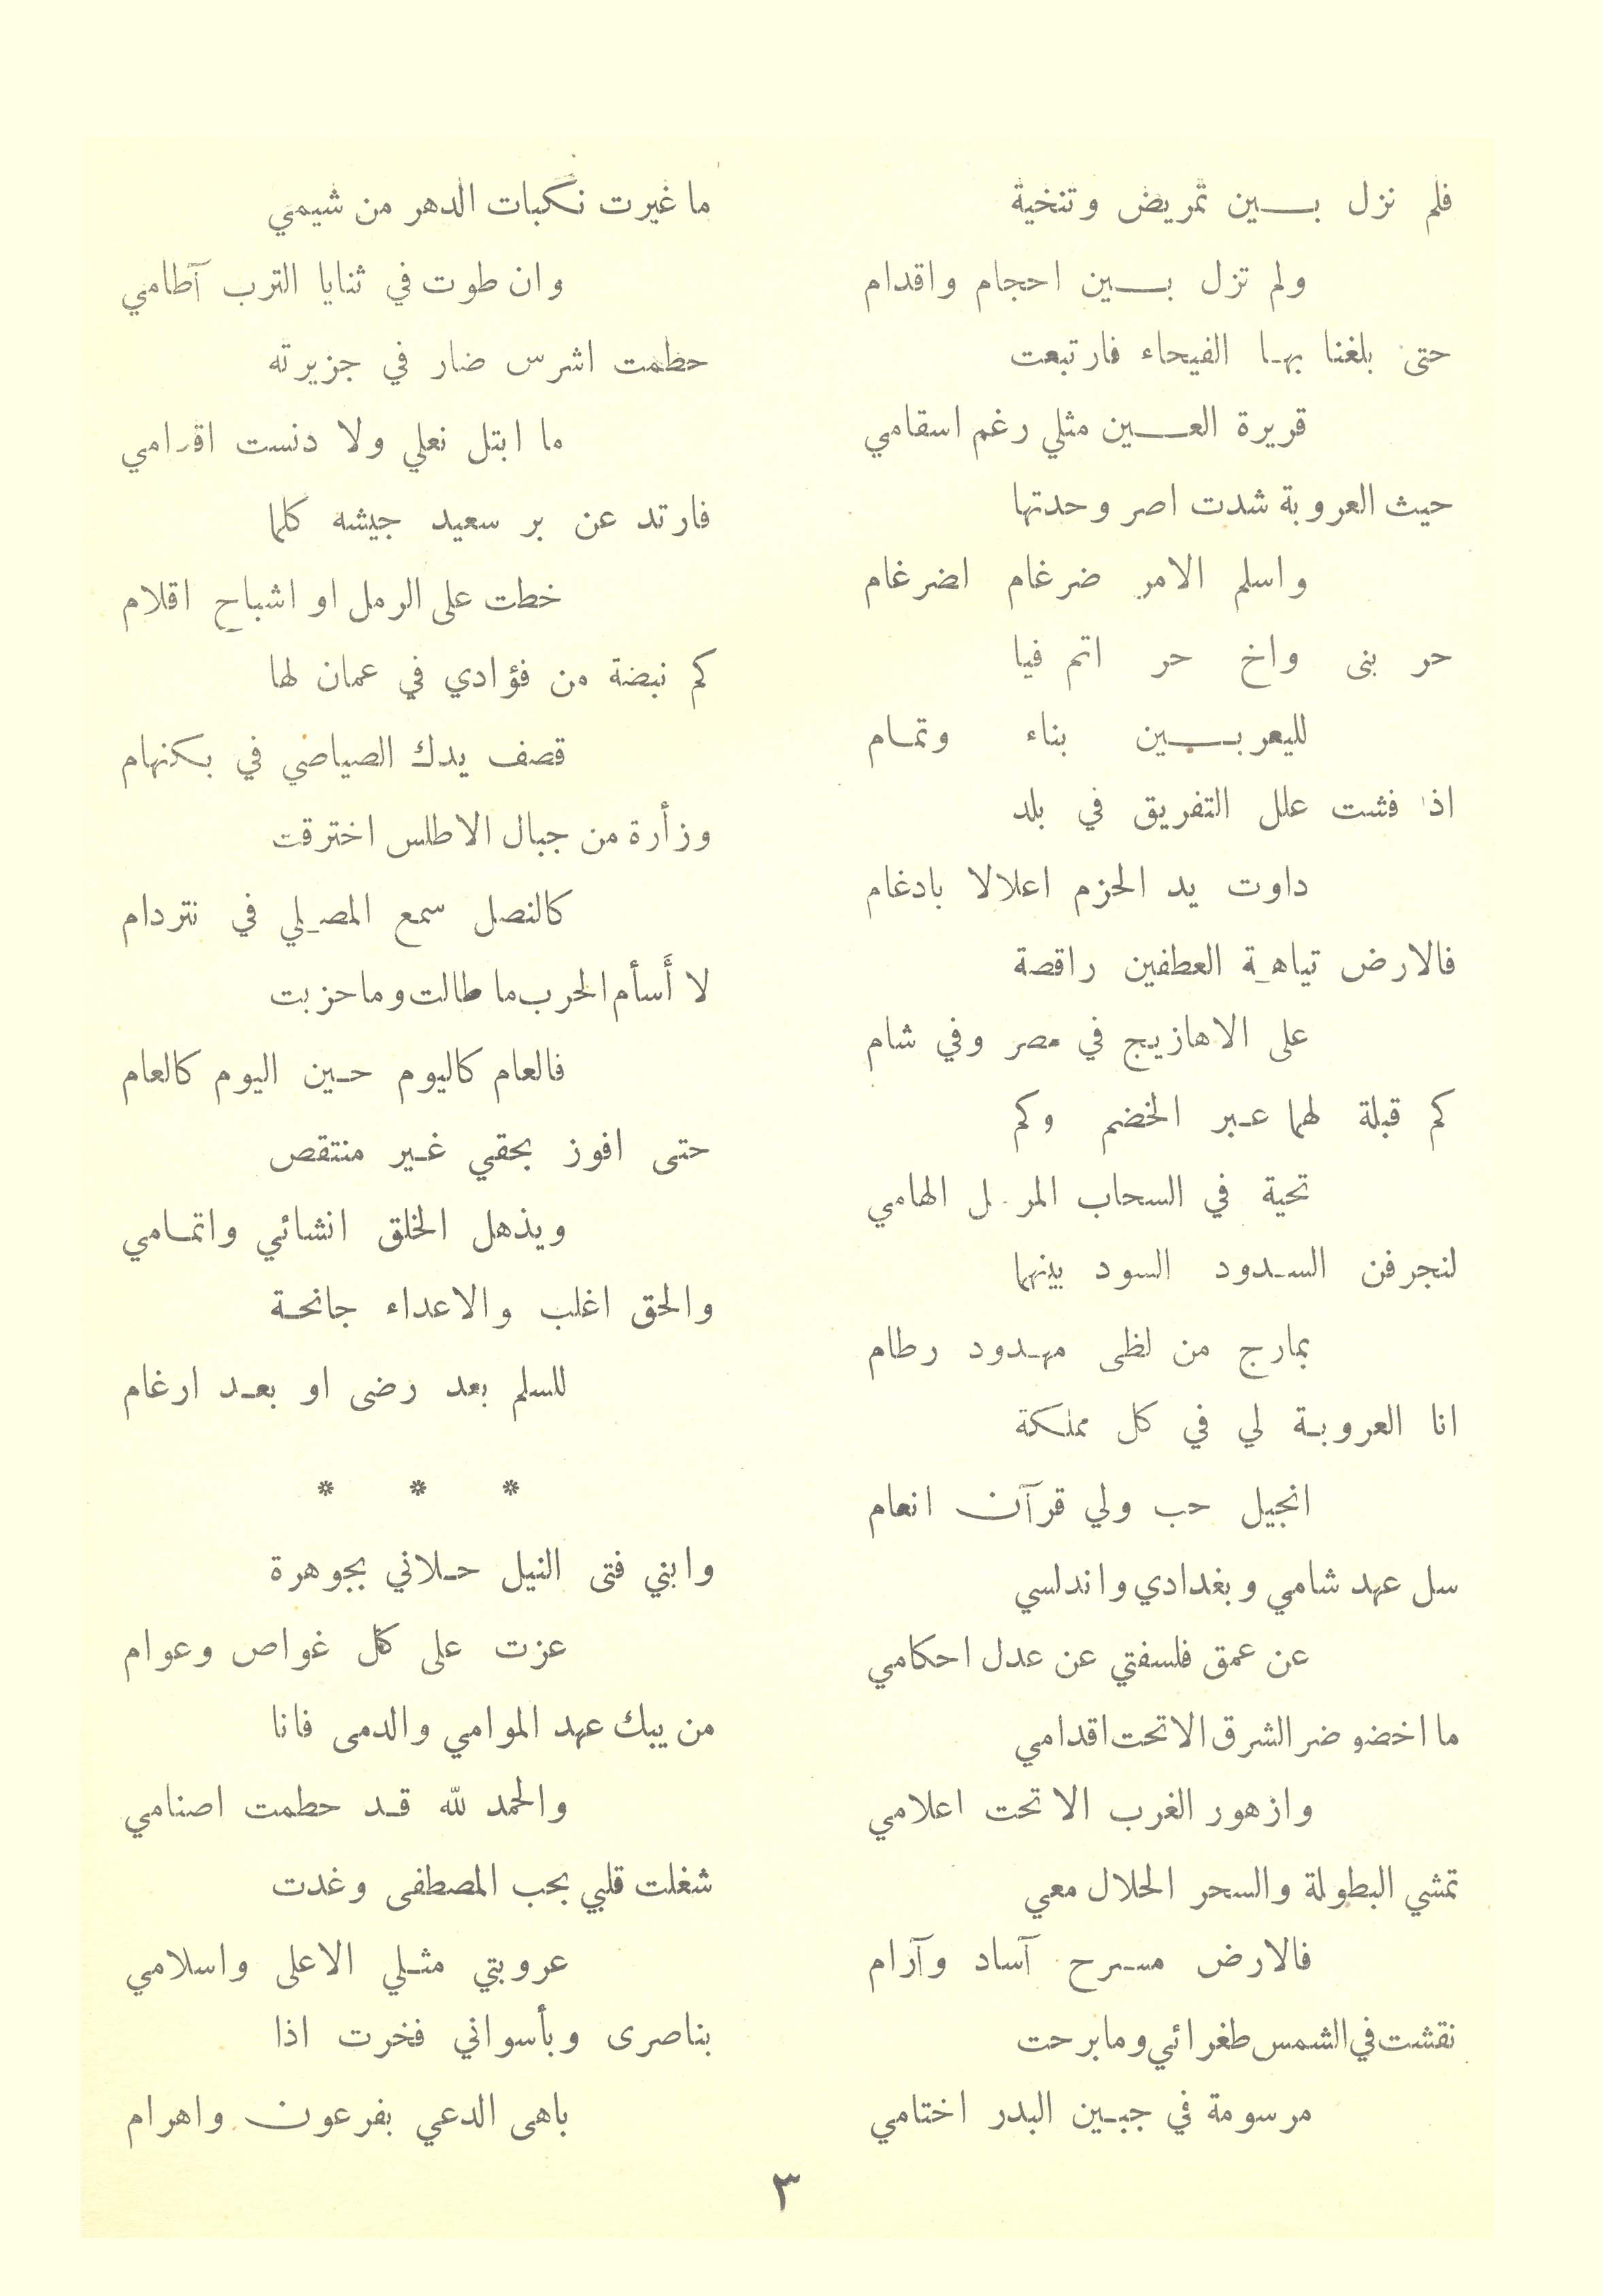 فلم نزل بين تمريض وتنخية
ولم تزل بين احجام واقدام
حتى بلغنا بها الفيحاء فارتبعت
قريرة العين مثلي رغم اسقامي
حيث العروبة شدت اصر وحدتها
واسلم الامر ضرغام لضرغام
حر بنى واخ حر اتم فيا
لليعربين بناء وتمام
اذا فشت علل التفريق في بلد
داوت يد الحزم اعلالا بادغام
فالارض تياهة العطفين راقصة
على الاهازيج في مصر وفي شام
كم قبلة لهما عبر الخضم وكم
تحية في السحاب المرسل الهامي
لنجرفن السدود السود بينهما
بمارج من لظى مهدود رطام
انا العروبة لي في كل مملكة
انجيل حب ولي قرآن انعام
سل عهد شامي وبغدادي واندلسي
عن عمق فلسفتي عن عدل احكامي
ما اخضوضر الشرق الا تحت اقدامي
وازهور الغرب الا تحت اعلامي
تمشي البطولة والسحر الحلال معي
فالارض مسرح آساد وآرام
نقشت في الشمس طغرائي وما برحت
مرسومة في جبين البدر اختامي
ما غيرت نكبات الدهر من شيمي
وان طوت في ثنايا الترب آطامي
حطمت اشرس ضار في جزيرته
ما ابتل نعلي ولا دنست اقدامي
فارتد عن بر سعيد جيشه كلما
خطت على الرمل او اشباح اقلام
كم نبضة من فؤادي في عمان لها
قصف يدك الصياصي في بكنهام
وزأرة من جبال الاطلس اخترقت
كالنصل سمع المصلي في نتردام
لا أَسأم الحرب ما طالت وما حزبت
فالعام كاليوم حين اليوم كالعام
حتى افوز بحقي غير منتقص
ويذهل الخلق انشائي واتمامي
والحق اغلب والاعداء جانحة
للسلم بعد رضى او بعد ارغام
* * *
وابني فتى النيل حلاني بجوهرة
عزت على كل غواص وعوام
من يبك عهد الموامي والدمى فانا
والحمد لله قد حطمت اصنامي
شغلت قلبي بحب المصطفى وغدت
عروبتي مثلي الاعلى واسلامي
بناصرى وبأسواني فخرت اذا
باهى الدعي بفرعون واهرام
٣